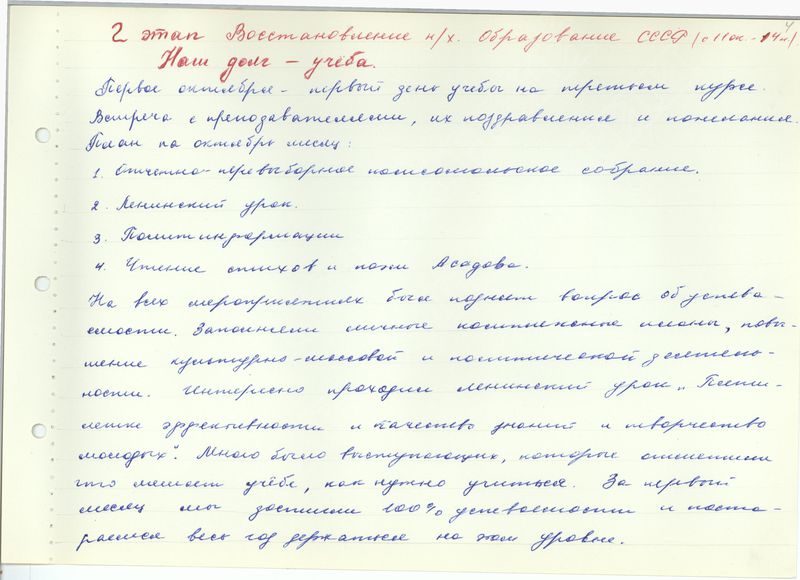 4
2 этап Восстановление н/х. Образование СССР (с 11ок. - 14н)
Наш долг – учёба.
Первое октября – первый день учебы на третьем курсе.
Встреча с преподавателями, их поздравления и пожелания.
План на октябрь месяц:
1. Отчетно-перевыборное комсомольское собрание.
2. Ленинский урок.
3. Политинформации
4. Чтение стихов и поэм Асадова.
На всех мероприятиях был поднят вопрос об успева-
емости. Заполнили личные комплексные планы, повы-
шение культурно-массовой и политической деятель-
ности. Интересно проходил ленинский урок „Пяти-
летке эффективности и качества знания и творчество
молодых". Много было выступающих, которые отметили
что мешает учёбе, как нужно учиться. За первый
месяц мы достигли 100% успеваемости и поста-
раемся весь год держаться на этом уровне.